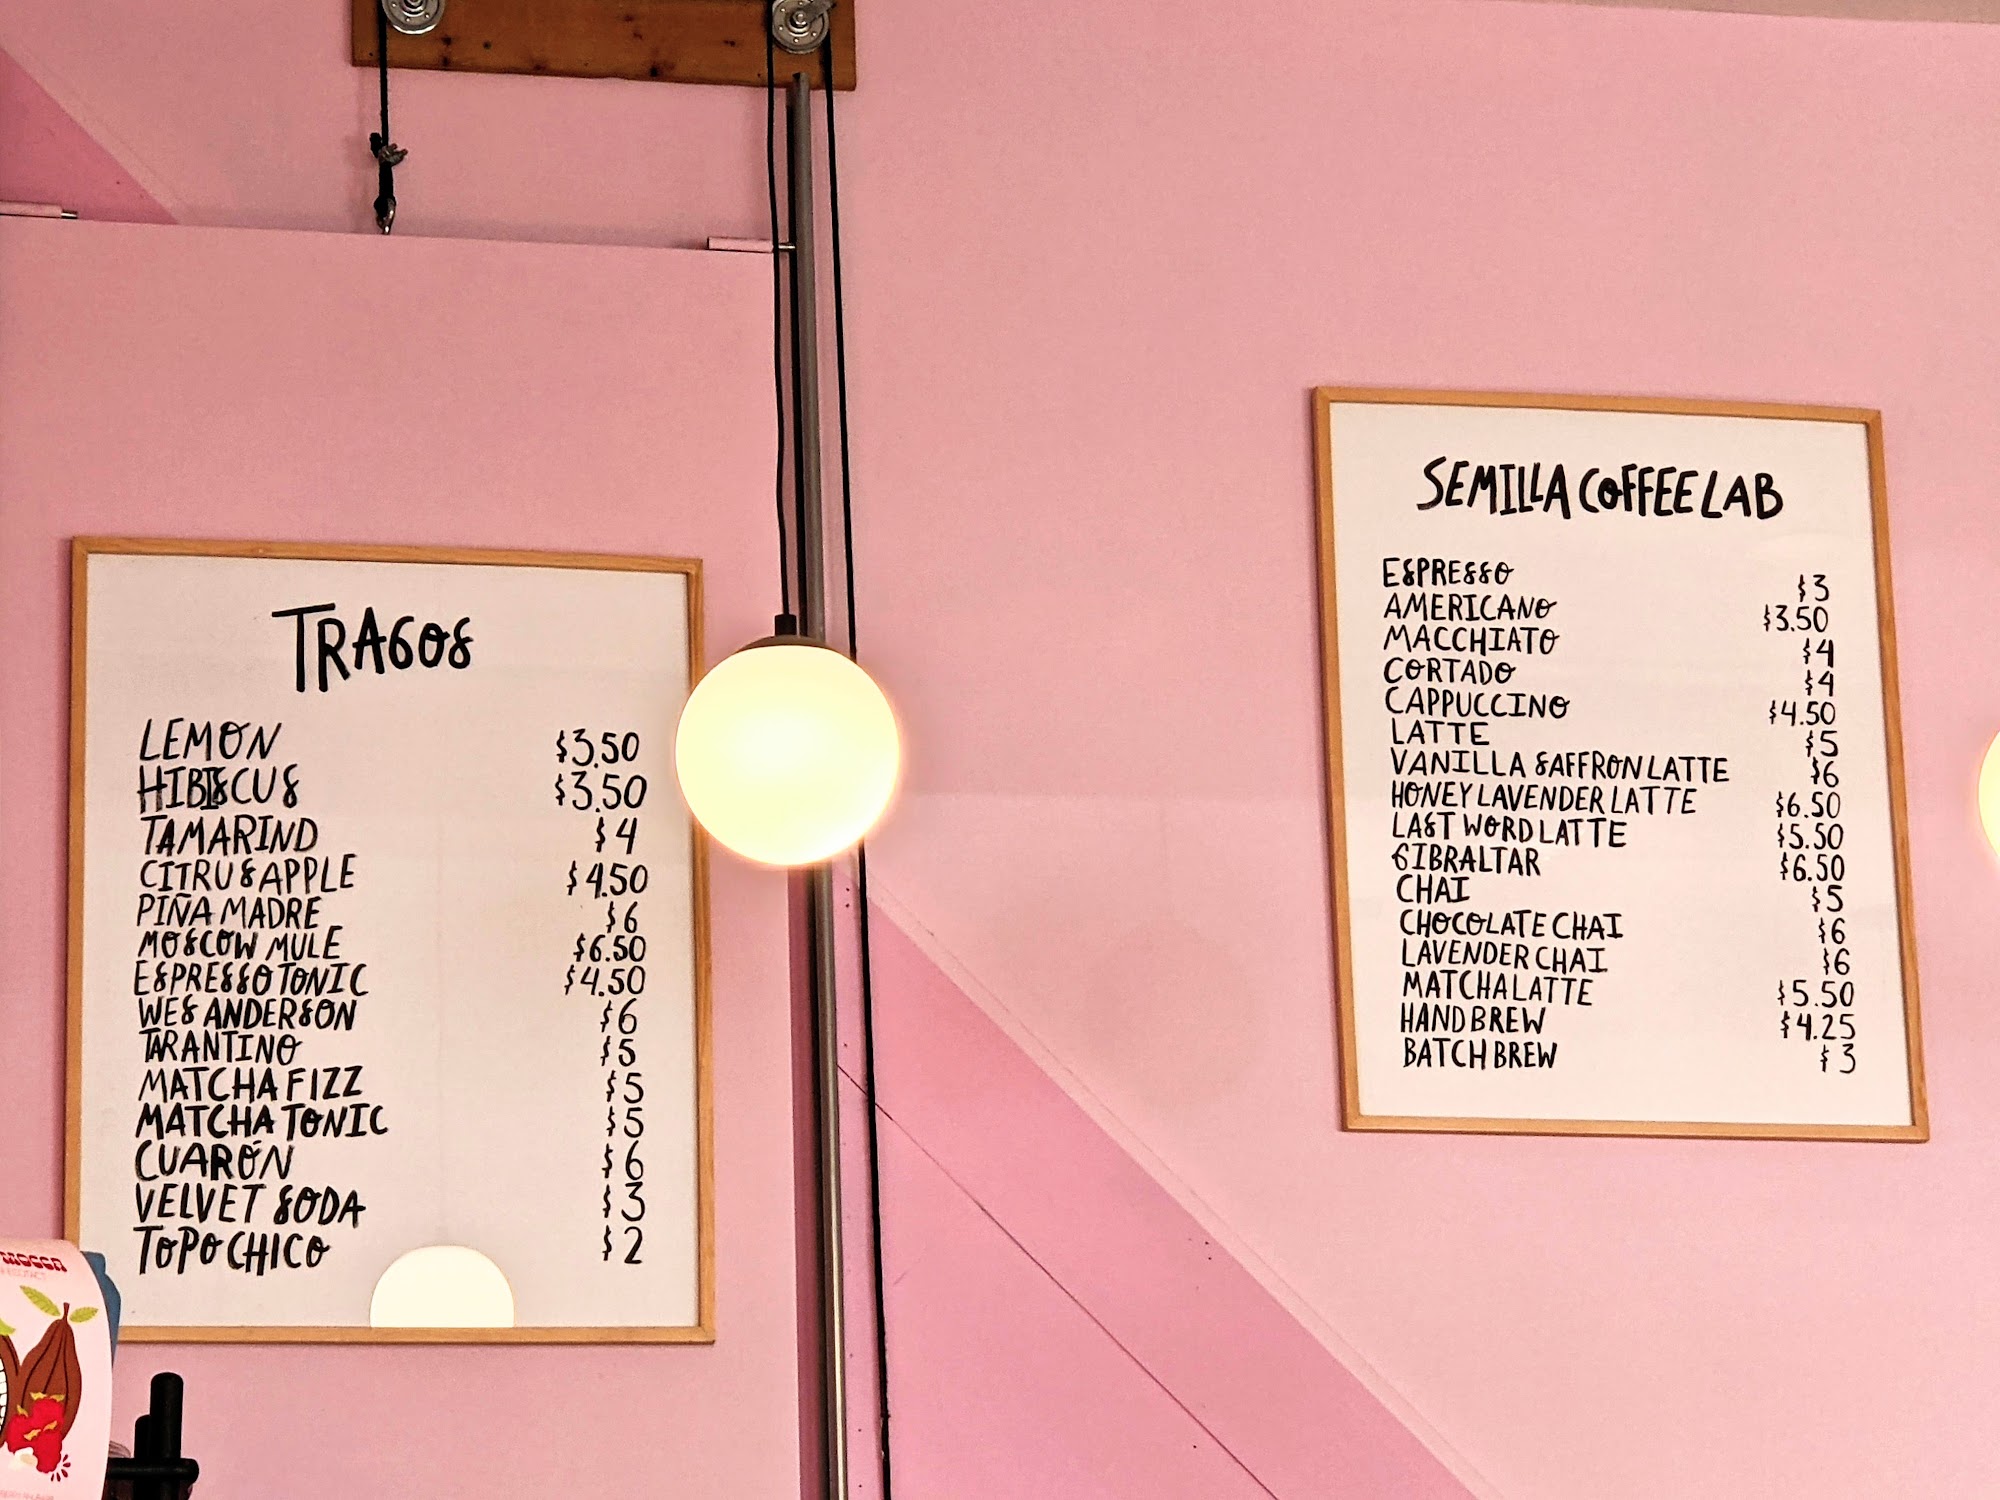 TRAGOS
LEMON $3.50
HIBISCUS $3.50
TAMARIND $4
CITRUS APPLE $4.50
PIÑA MADRE $6
MOSCOW MULE $6.50
ESPRESSO TONIC $4.50
WES ANDERSON $6
TARANTINO $5
MATCHA FIZZ $5
MATCHA TONIC $5
CUARÓN $6
VELVET SODA $3
TOPO CHICO $2
SEMILLA COFFEE LAB
ESPRESSO $3
AMERICANO $3.50
MACCHIATO $4
CORTADO $4
CAPPUCCINO $4.50
LATTE $5
VANILLA SAFFRON LATTE $6
HONEY LAVENDER LATTE $6.50
LAST WORD LATTE $5.50
GIBRALTAR $6.50
CHAI $5
CHOCOLATE CHAI $6
LAVENDER CHAI $6
MATCHA LATTE $5.50
HAND BREW $4.25
BATCH BREW $3